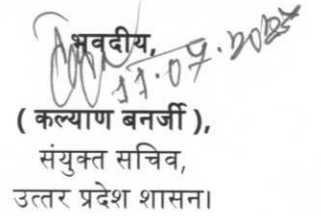 भवदीय,
11.07.2023
( कल्याण बनर्जी ),
संयुक्त सचिव,
उत्तर प्रदेश शासन।